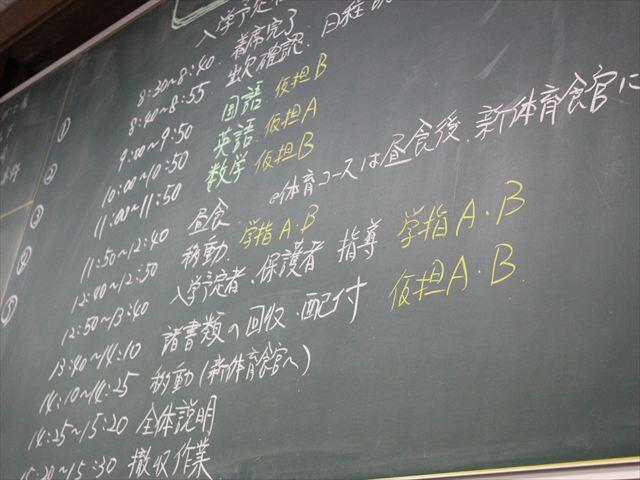 入学予定
8:30~8:40 着席完了
① 8:40~8:55 出欠確認、日程
② 9:00~9:50 国語 仮担B
③ 10:00~10:50 英語 仮担A
④ 11:00~11:50 数学 仮担B
⑤ 11:50~12:40 昼食 ※体育コースは昼食後、新体育館に
12:40~12:50 移動 学指A・B
12:50~13:40 入学予定者、保護者 指導 学指A・B
13:40~14:10 諸書類の回収・配付 仮担A・B
14:10~14:25 移動(新体育館へ)
14:25~15:20 全体説明
15:20~15:30 撤収作業